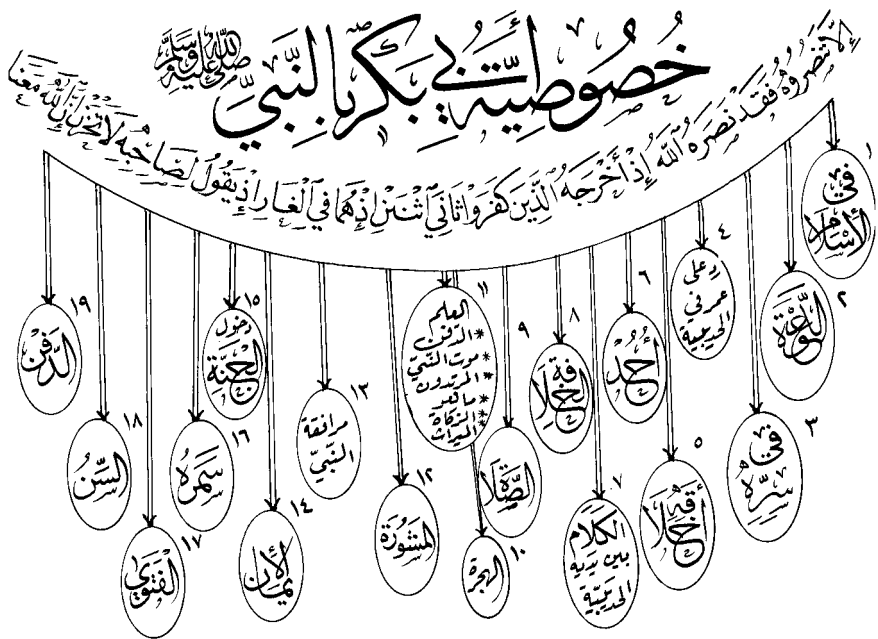 خُصُوصِيَّة أَبِي بَكْرٍ بِالنَّبِيِّ ﷺ
إِلَّا تَنْصُرُوهُ فَقَدْ نَصَرَهُ اللَّهُ إِذْ أَخْرَجَهُ الَّذِينَ كَفَرُوا ثَانِيَ اثْنَيْنِ إِذْ هُمَا فِي الْغَارِ إِذْ يَقُولُ لِصَاحِبِهِ لَا تَحْزَنْ إِنَّ اللَّهَ مَعَنَا
١
في
الإسلام
٢
الدعوة
٣
في
سره
٤
رد على
عمر في
الحديبية
٥
أخلاقه
٦
أُحُد
٧
الكلام
بين يديه
الحديبية
٨
الخلافة
٩
الصلاة
١٠
الهجرة
١١
العلم
* الدفن
* موت النبي
* المرتدون
* الزكاة
* الميراث
١٢
المشورة
١٣
مرافقة
النبي
١٤
الإيمان
١٥
دخول
الجنة
١٦
سمره
١٧
الفتوى
١٨
السن
١٩
الدفن